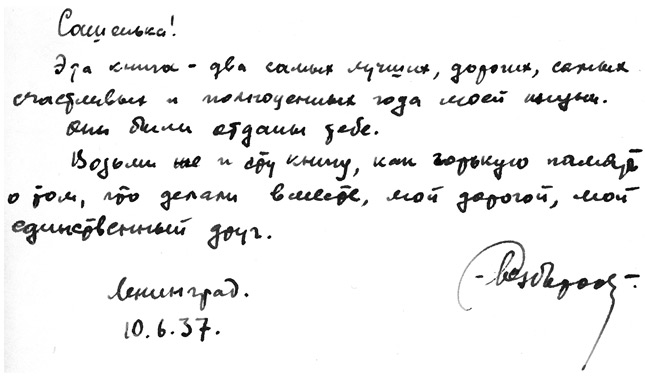 Сашенька!
Эта книга - два самых лучших, дорогих, самых
счастливых и полноценных года моей жизни.
Они были отданы тебе.
Возьми же и эту книгу, как горькую память
о том, что делали вместе, мой дорогой, мой
единственный друг.
Ленинград.
10.6.37.